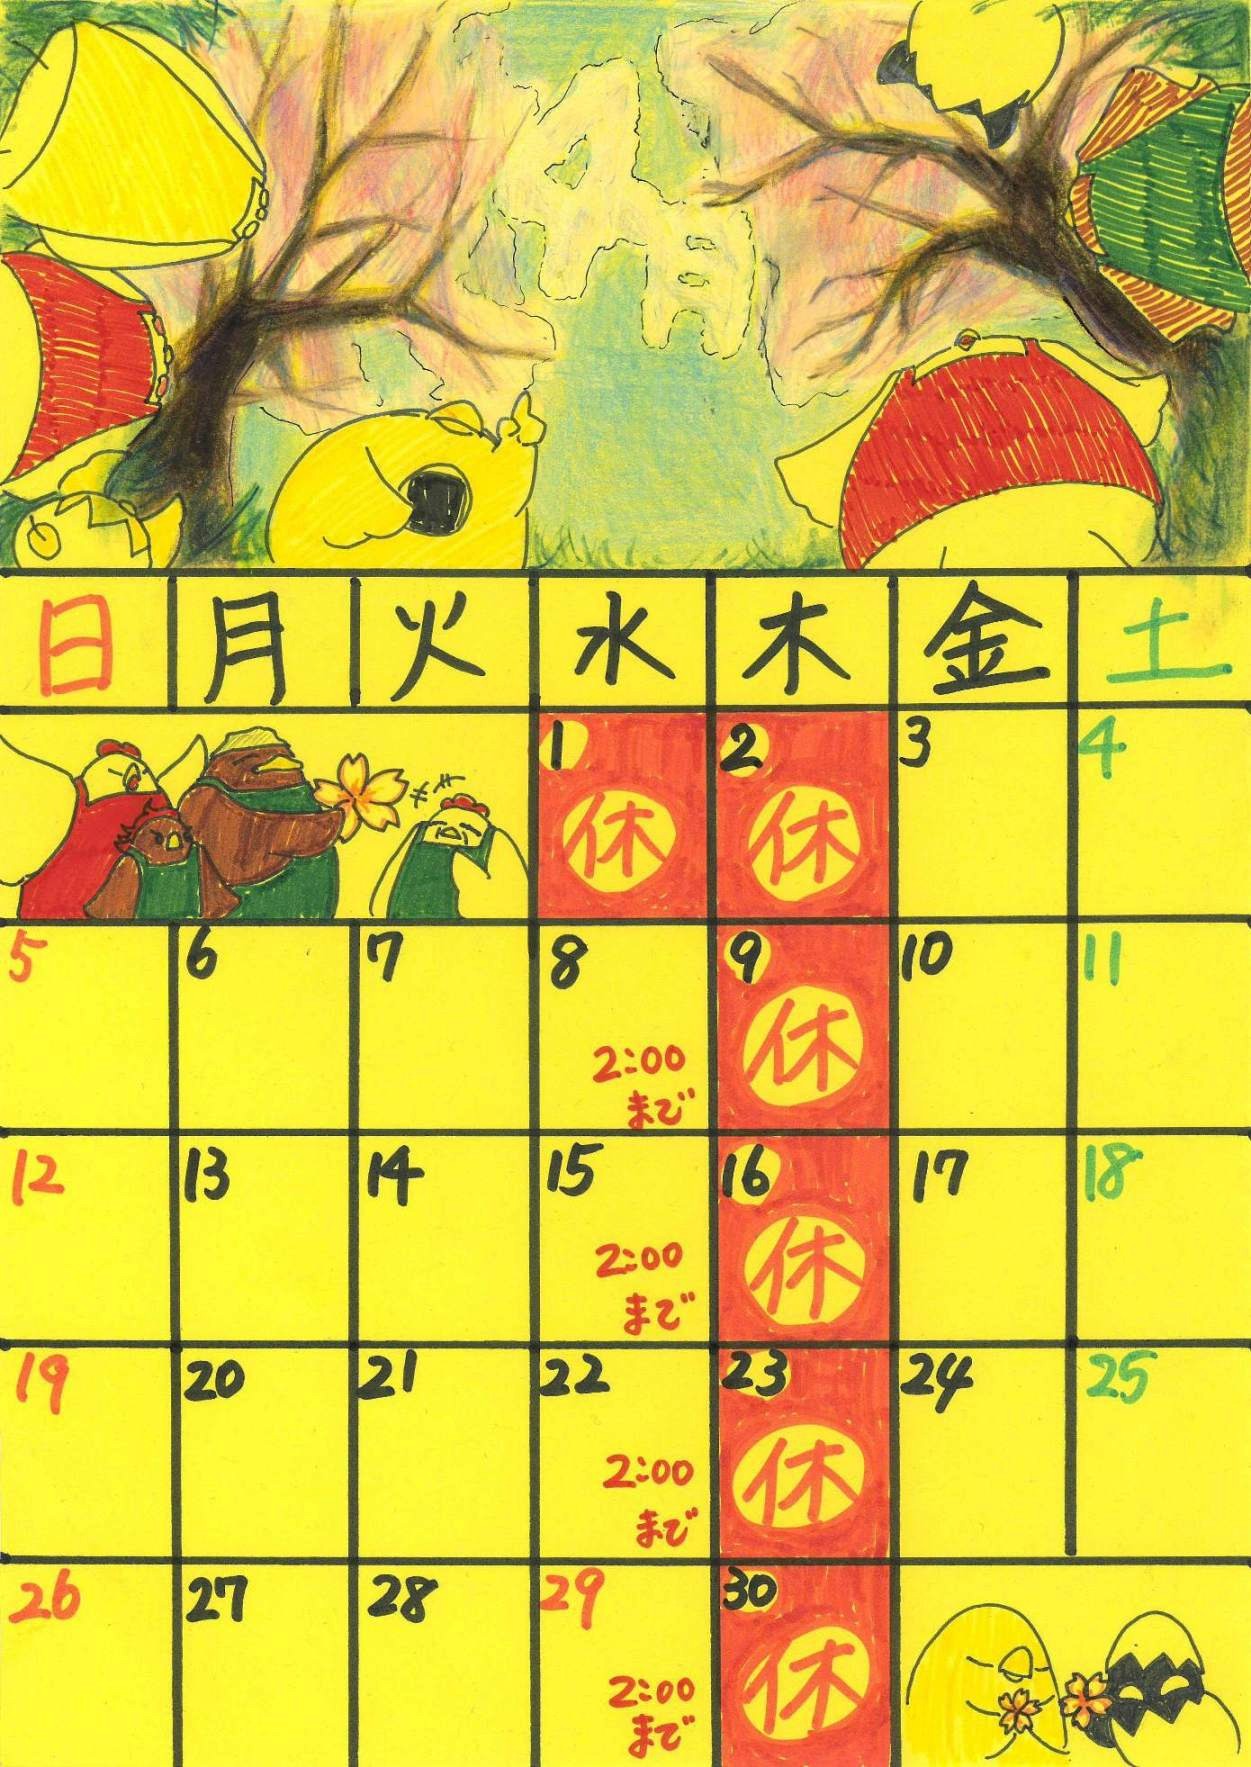 4月
日 月 火 水 木 金 土
1 2 3 4
休 休
5 6 7 8 9 10 11
休
2:00
まで
12 13 14 15 16 17 18
休
2:00
まで
19 20 21 22 23 24 25
休
2:00
まで
26 27 28 29 30
休
2:00
まで